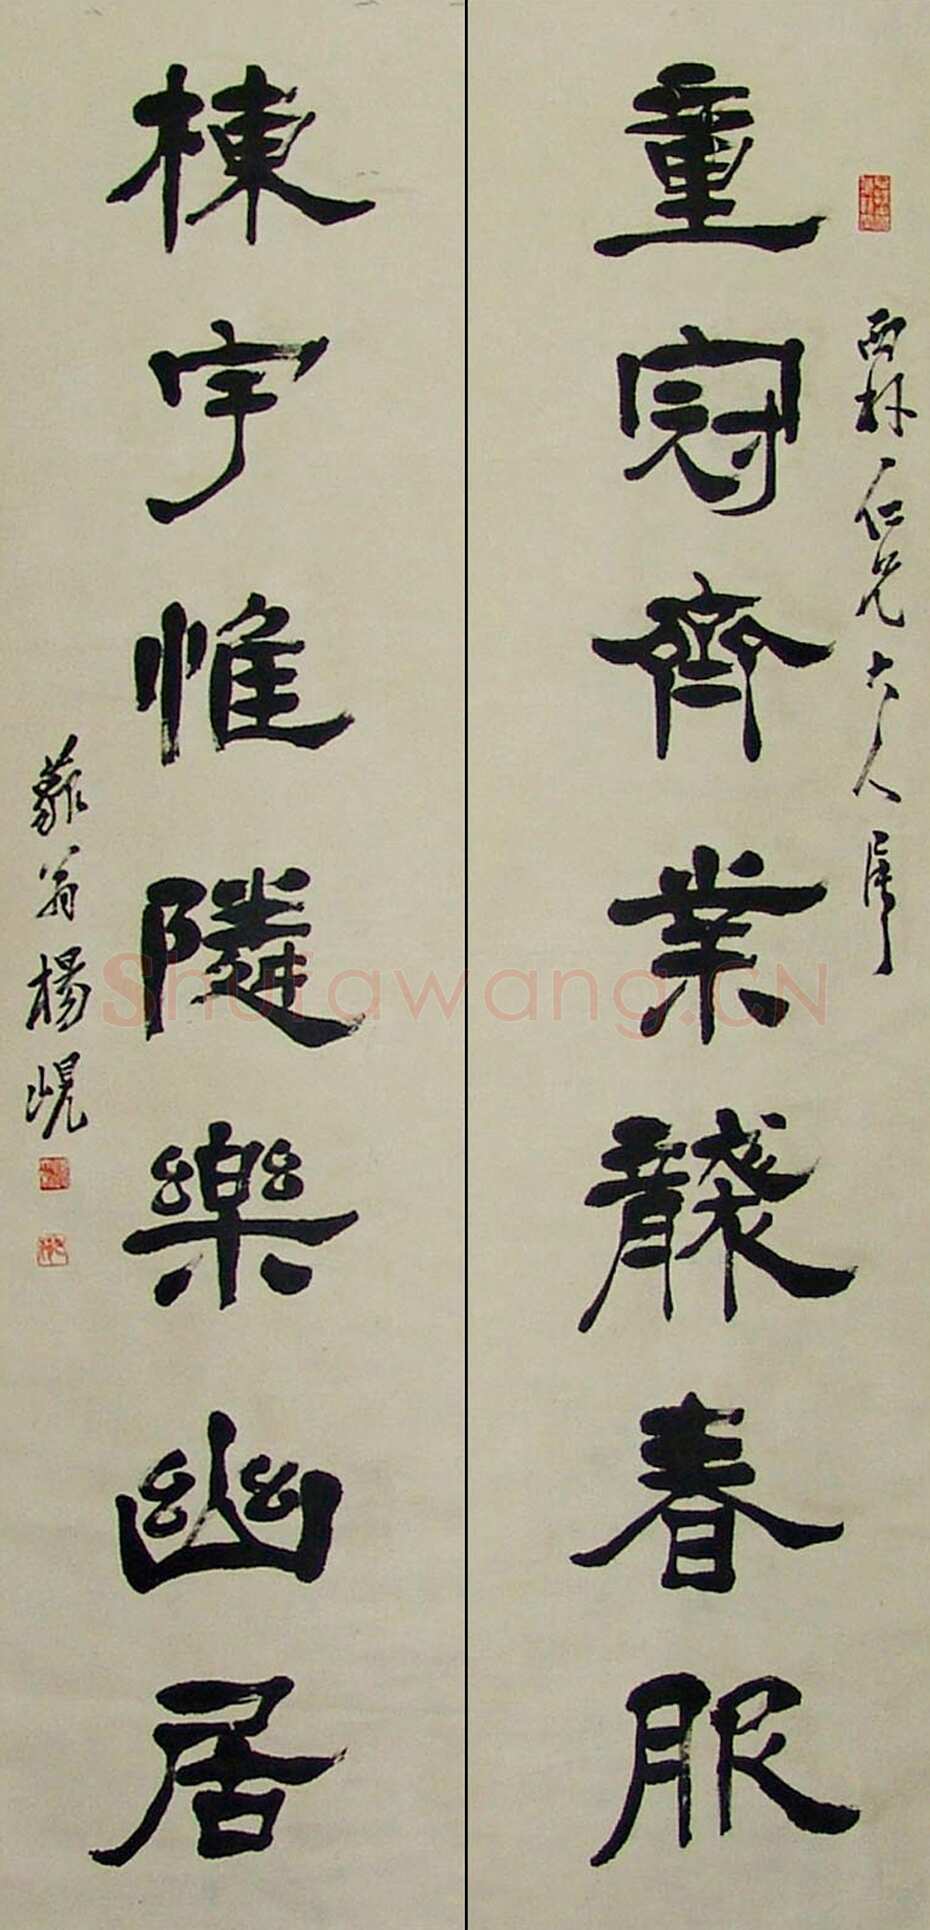 西林仁兄大人屬
童冠齊業襲春服
棟宇惟隣樂幽居
藐翁楊峴
Shufawang.CN